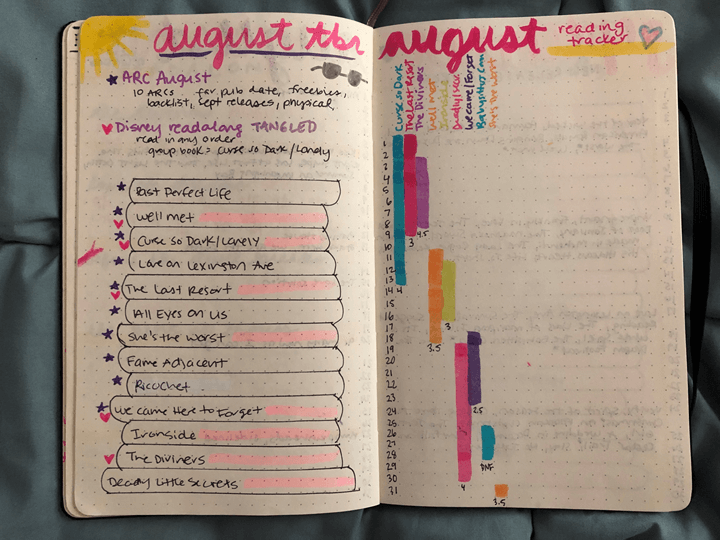 august tbr
ARC August
10 ARCs fav pub date, freebies,
backlist, sept releases, physical,
Disney readalong TANGLED
read in any order
group book = Curse so Dark/Lonely
Past Perfect Life
Well Met
Curse so Dark/Lonely
Love on Lexington Ave
The Last Resort
All Eyes on Us
She's the Worst
Fame Adjacent
Ricochet
We Came Here to Forget
Ironside
The Diviners
Deadly Little Secrets
august
reading
tracker
Curse so Dark
The Last Resort
The Diviners
Well Met
Ironside
Deadly/Secr.
We came/Forget
Babysitters Coven
She's the Worst
1
2
3
4
5
6
7
8
9
4.5
3
10
11
12
13
14
4
15
16
3
17
18
3.5
19
20
21
22
23
2.5
24
25
26
27
28
DNF
29
30
4
31
3.5